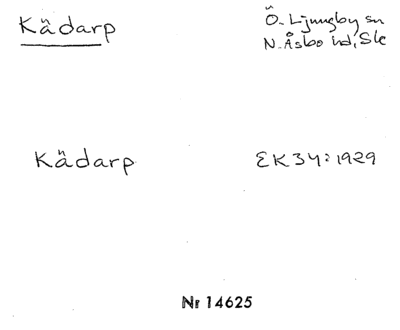 Kädarp
Ö. Ljungby sn
N. Åsbo hd, Sk
Kädarp
EK34:1929
Nr 14625